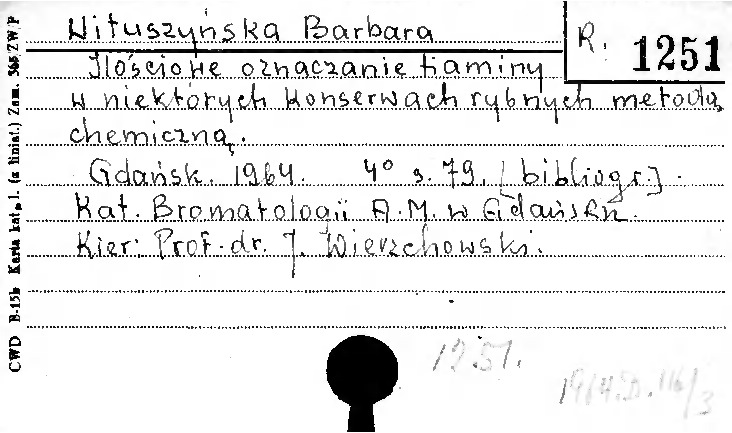 Wituszyńska Barbara
R. 1251
Ilościowe oznaczanie tiaminy
w niektórych konserwach rybnych metodą
chemiczną.
Gdańsk. 1964. 4° s. 79. [bibliogr.].
Kat. Bromatologii A.M. w Gdańsku.
Kier: Prof. dr. J. Wierzchowski.
1251.
1964.D.116/3
CWD B-15b Karta kat. l. (a liniat.) Zam. 565 ZW/P